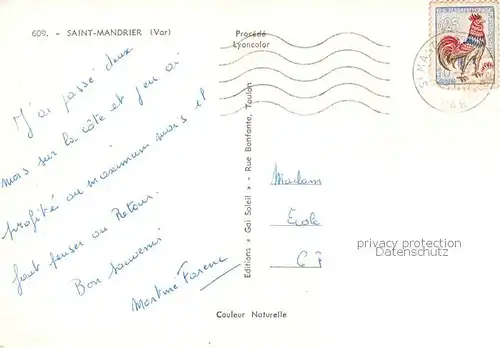 609. - SAINT-MANDRIER (Var)
Procédé
Lyoncolor
J'ai passé deux
mois sur la côte et j'en ai
profité au maximum mais il
faut penser au Retour.
Bon souvenir
Martine
Editions « Gai Soleil » - Rue Bonfante, Toulon
0,25
ST MAN
VAR
Madam
Ecole
C
privacy protection
Datenschutz
Couleur Naturelle